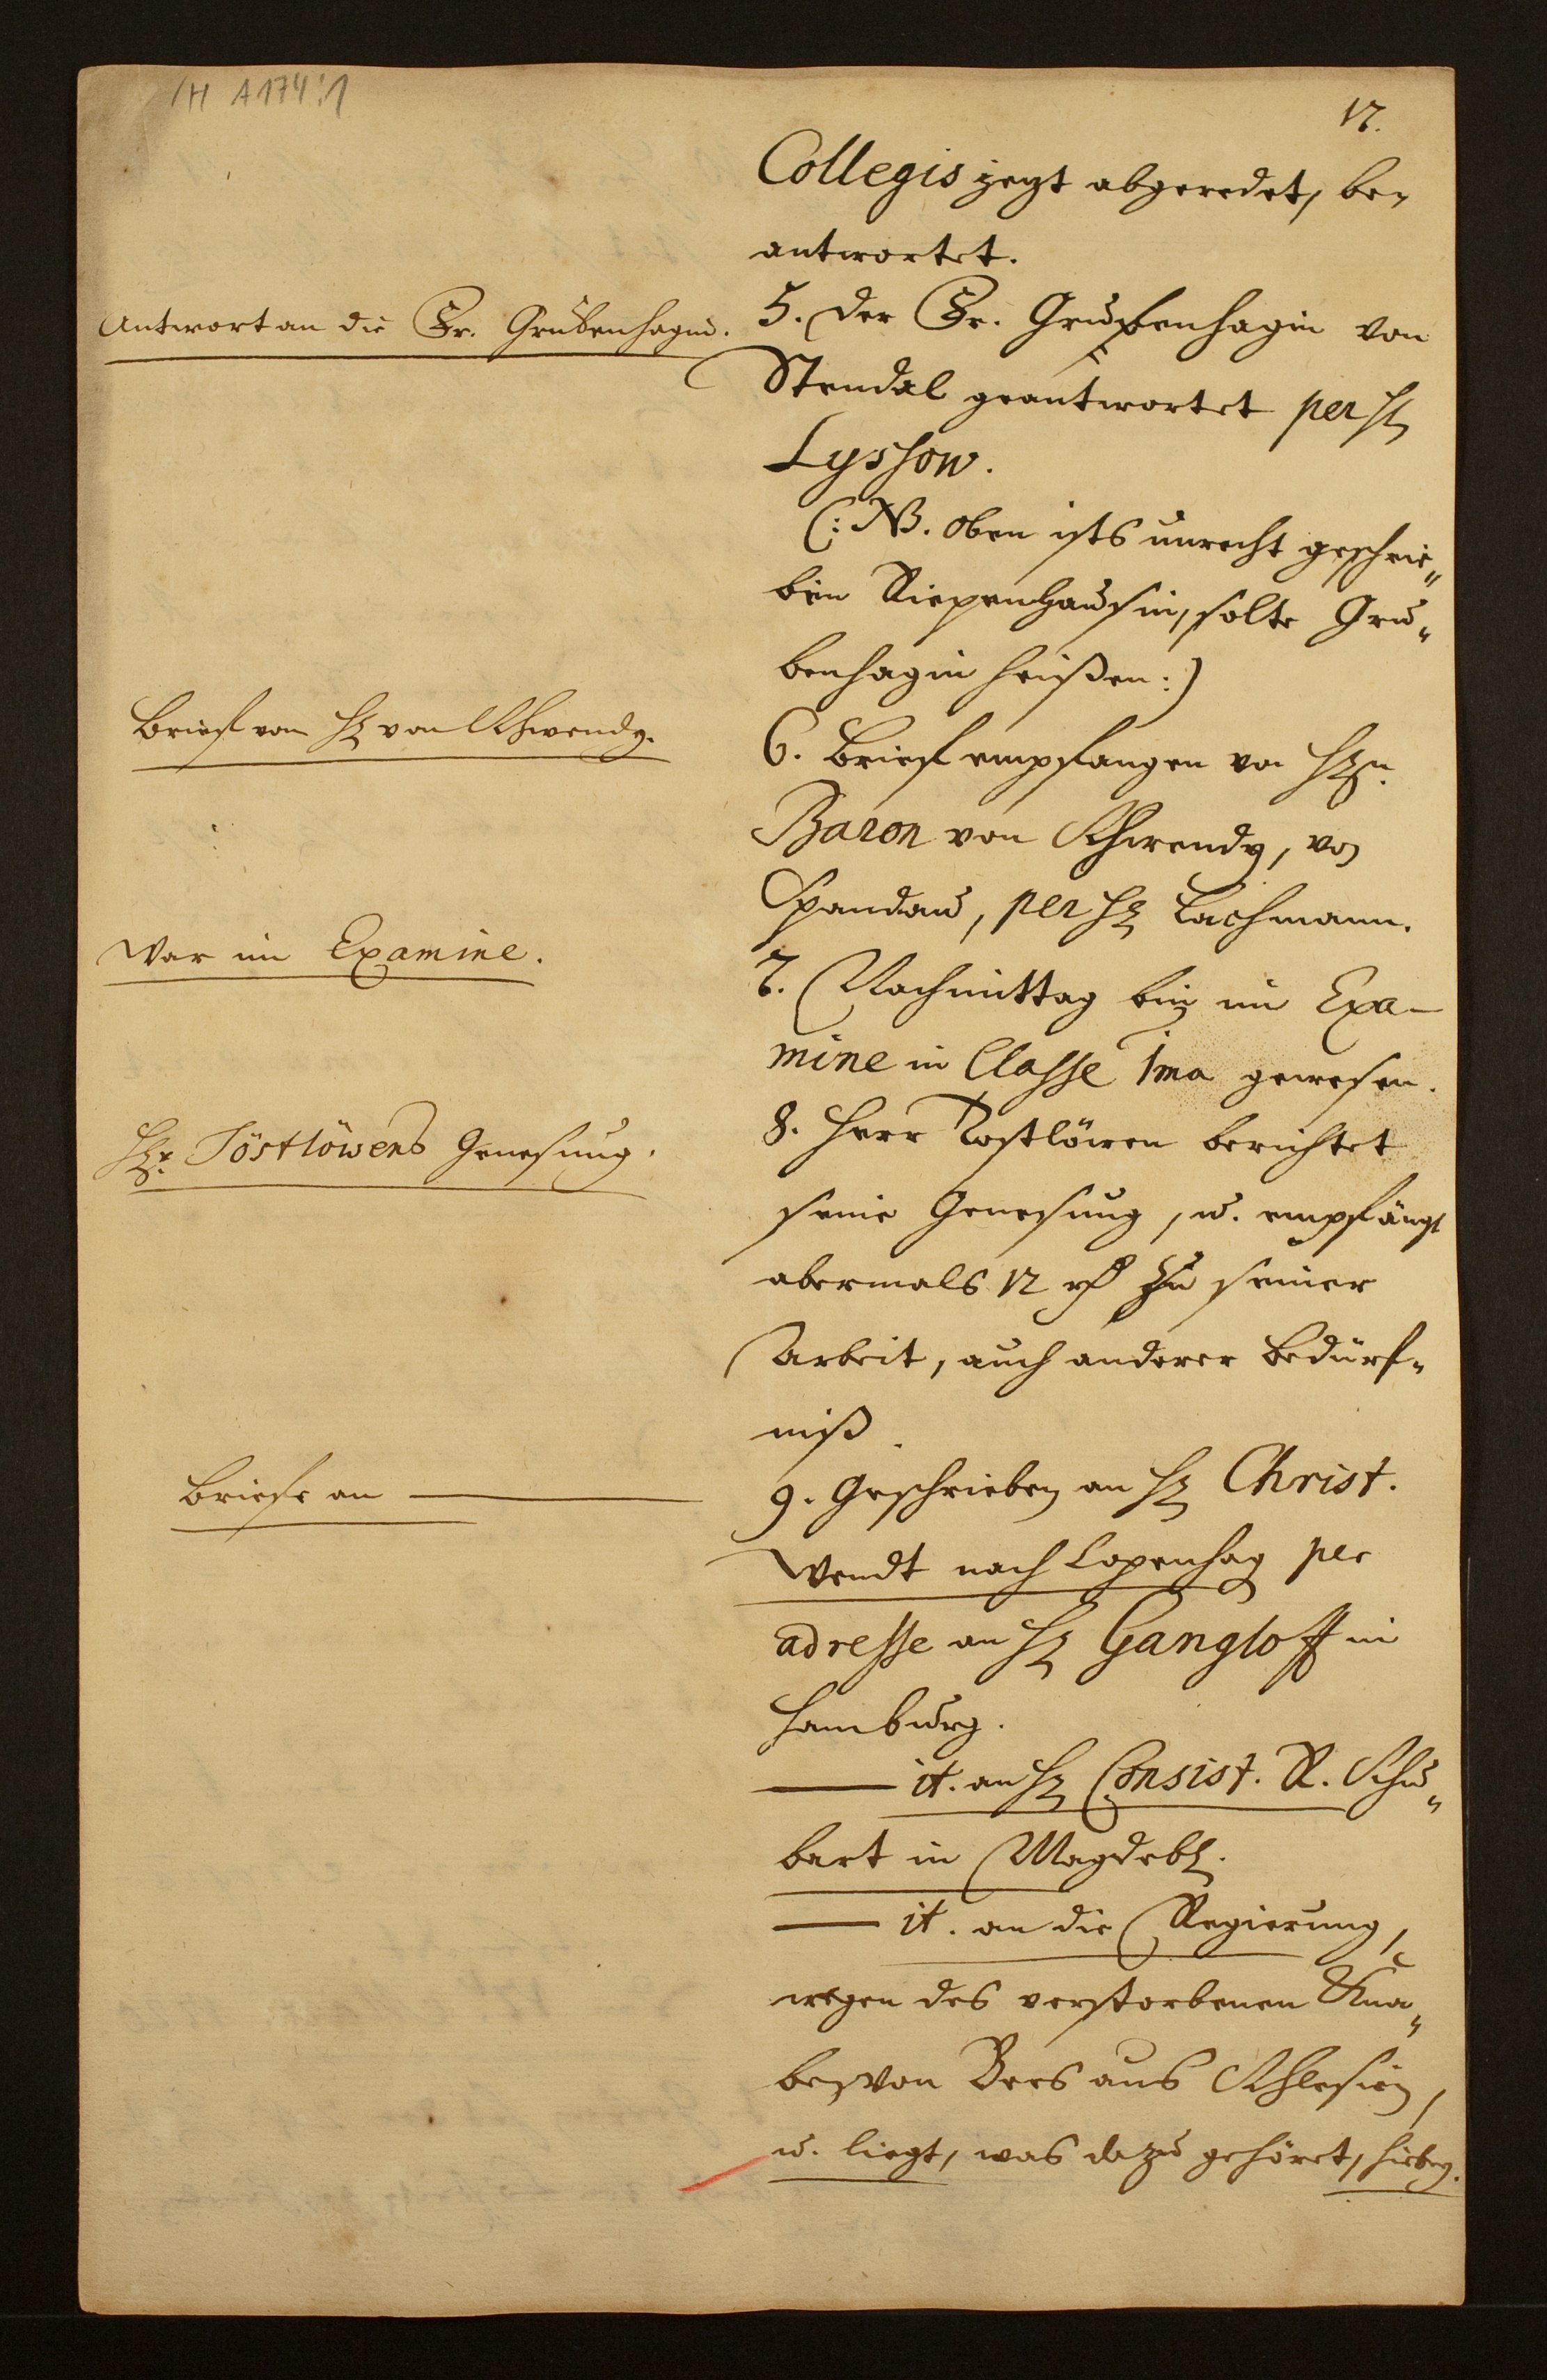 H A 174:1
17.
Collegis jezt abgeredet, be-
antwortet.
Antwort an die Fr. Grubenhagin.
5. Der Fr. Grubenhagin von
Stendal geantwortet per H.
Lyssow.
(: NB. oben ists unrecht geschrie-
ben Riepenhausin, solte Gru-
benhagin heißen :)
Brief von H. von Schwendy.
6. Brief empfangen von Hrn.
Baron von Schwendy, von
Spandau, per H. Lachmann.
War im Examine.
7. Nachmittag bin im Exa-
mine in Classe 1ma gewesen.
Hr. Töstlöwens Genesung.
8. Herr Tostlöwen berichtet
seine Genesung, u. empfängt
abermals 12 rth zu seiner
Arbeit, auch anderer Bedürf-
niß.
Briefe an
9. Geschrieben an H. Christ.
Wendt nach Copenhag. per
adresse an H. Gangloff in
Hamburg.
it. an H. Consist. R. Schu-
bart in Magdeb.
it. an die Regierung,
wegen des verstorbenen Kna-
ben von Bees aus Schlesien,
u. liegt, was dazu gehöret, hiebey.